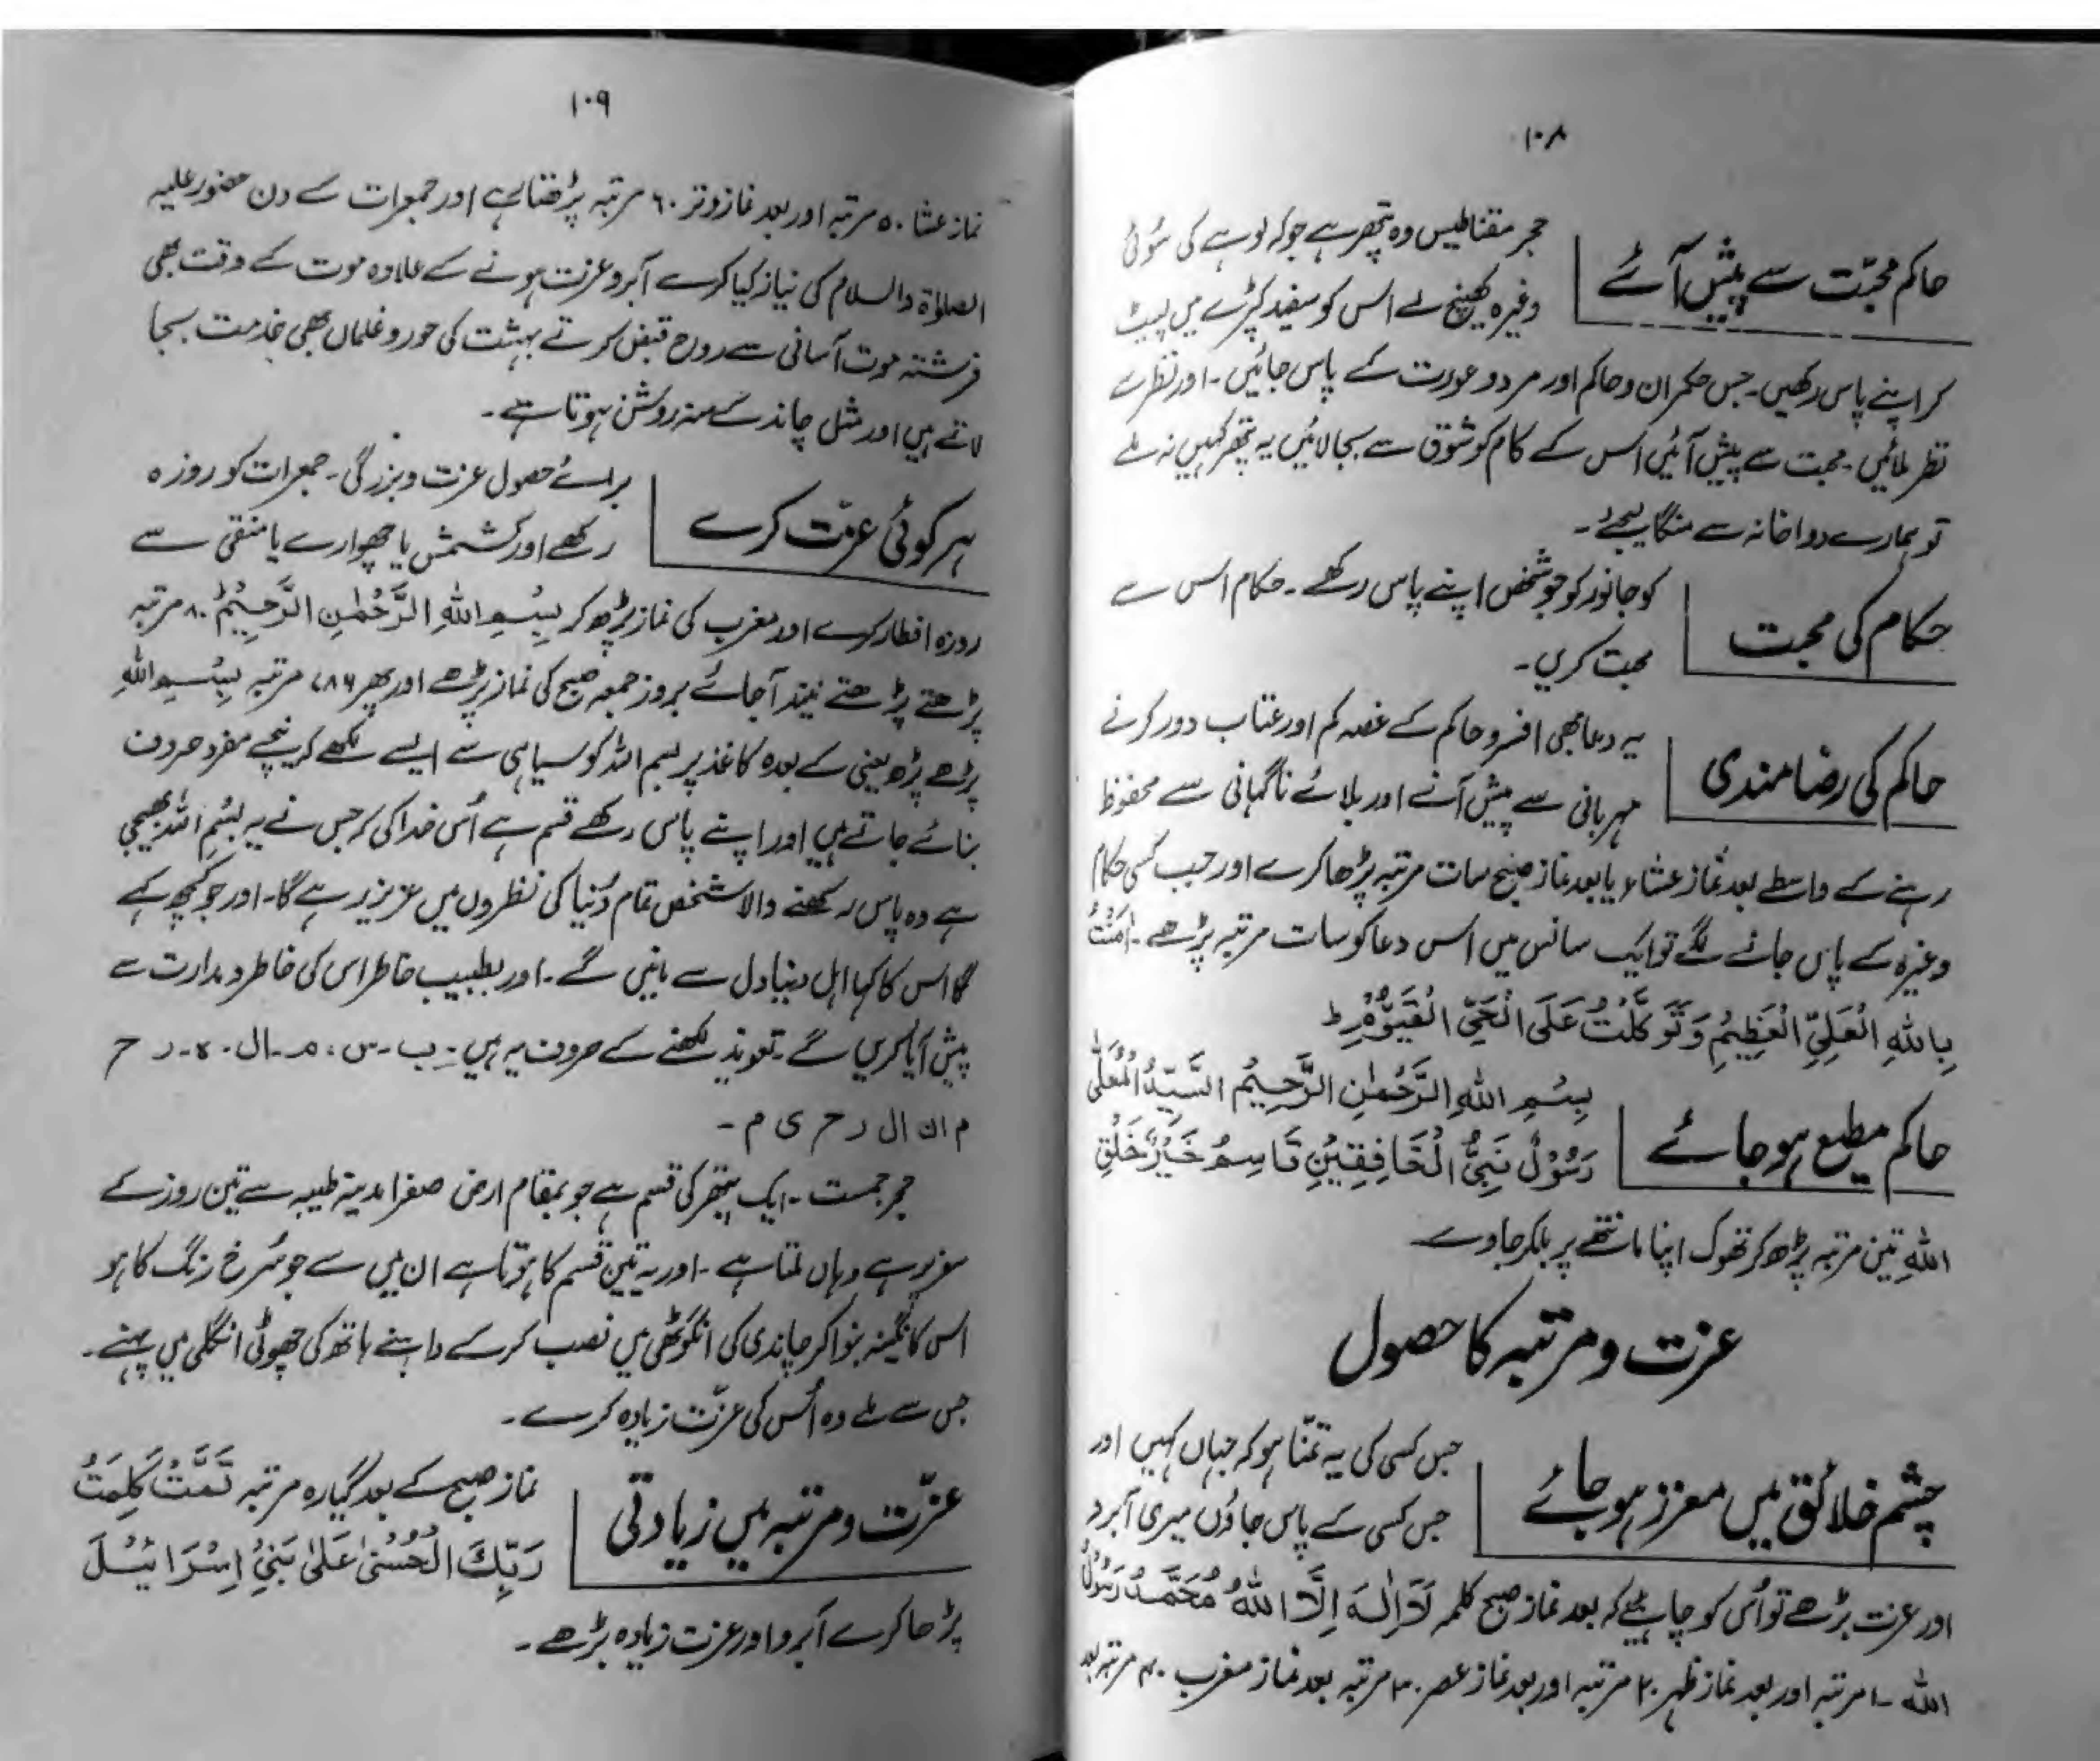 ۱۰۸
حاکم محبّت سے پیش آئے
حجر مقناطیس وہ پتھر ہے جو کہ لوہے کی سُوئی
وغیرہ کھینچ لے اس کو سفید کپڑے میں لپیٹ
کر اپنے پاس رکھیں۔ جس حکمران و حاکم اور مرد و عورت کے پاس جائیں۔ اور نظر سے
نظر ملائیں۔ محبت سے پیش آئیں اس کے کام کو شوق سے بجا لائیں یہ پتھر کہیں نہ ملے
تو ہمارے دواخانہ سے منگا لیجئے۔
حکام کی محبت
کو جانور کو جو شخص اپنے پاس رکھے۔ حکام اس سے
محبت کریں۔
حاکم کی رضامندی
یہ دعا بھی افسر و حاکم کے غصہ کم اور عتاب دور کرنے
مہربانی سے پیش آنے اور بلائے ناگہانی سے محفوظ
رہنے کے واسطے بعد نماز عشاء یا بعد نماز صبح سات مرتبہ پڑھا کرے اور جب کسی حکام
وغیرہ کے پاس جانے لگے تو ایک سانس میں اس دعا کو سات مرتبہ پڑھے۔ اٰمَنْتُ
بِاللّٰهِ الْعَلِیِّ الْعَظِیْمِ وَتَوَکَّلْتُ عَلَی الْحَیِّ الْقَیُّوْمِ ط
حاکم مطیع ہو جائے
بِسْمِ اللّٰهِ الرَّحْمٰنِ الرَّحِیْمُ السَّیِّدُ الْمُعَلّٰی
رَسُوْلٌ نَبِیُّ الْخَافِقِیْنِ قَاسِمُ خَیْرُ خَلْقِ
اللّٰهِ تین مرتبہ پڑھ کر تھوک اپنا ماتھے پر مل کر جاوے۔
عزت و مرتبہ کا حصول
چشم خلائق میں معزز ہو جائے
جس کسی کی یہ تمنّا ہو کہ جہاں کہیں اور
جس کسی کے پاس جاؤں میری آبرو
اور عزت بڑھے تو اُس کو چاہیئے کہ بعد نماز صبح کلمہ لَا اِلٰهَ اِلَّا اللّٰهُ مُحَمَّدٌ رَسُوْلُ
اللّٰه ۱۰ مرتبہ اور بعد نماز ظہر ۲۰ مرتبہ اور بعد نماز عصر ۳۰ مرتبہ بعد نماز مغرب ۴۰ مرتبہ بعد
۱۰۹
نماز عشا ۵۰ مرتبہ اور بعد نماز وتر ۶۰ مرتبہ پڑھتا ہے اور جمعرات کے دن حضور علیہ
الصلوٰۃ والسلام کی نیاز کیا کرے آبرو عزت ہونے کے علاوہ موت کے وقت بھی
فرشتہ موت آسانی سے روح قبض کرتے بہشت کی حور و غلماں بھی خدمت بجا
لاتے ہیں اور مثل چاند کے منہ روشن ہوتا ہے۔
ہر کوئی عزّت کرے
برائے حصول عزت و بزرگی۔ جمعرات کو روزہ
رکھے اور کشمش یا چھوارے یا منقی سے
روزہ افطار کرے اور مغرب کی نماز پڑھ کر بِسْمِ اللّٰهِ الرَّحْمٰنِ الرَّحِیْمُ ۸۰ مرتبہ
پڑھتے پڑھتے نیند آجائے بروز جمعہ صبح کی نماز پڑھے اور پھر ۷۸۶ مرتبہ بِسْمِ اللّٰهِ
پڑھے پڑھ یعنی کے بعدہ کاغذ پر بسم اللہ کو سیاہی سے ایسے لکھے کہ نیچے مفرد حروف
بنائے جاتے ہیں اور اپنے پاس رکھے قسم ہے اُس خدا کی کہ جس نے یہ بسْم اللہ بھیجی
ہے وہ پاس رکھنے والا شخص تمام دُنیا کی نظروں میں عزیز رہے گا۔ اور جو کچھ کہے
گا اس کا کہا اہل دنیا دل سے مانیں گے۔ اور بطیب خاطر اس کی خاطر و مدارت سے
پیش آیا کریں گے۔ تعویذ لکھنے کے حروف یہ ہیں۔ ب۔ س، م۔ ال۔ ہ۔ ر ح
م ان ال ر ح ی م۔
حجر جمست۔ ایک پتھر کی قسم ہے جو بمقام ارض صفرا مدینہ طیبہ سے تین روز کے
سفر پر ہے وہاں ملتا ہے۔ اور یہ تین قسم کا ہوتا ہے ان میں سے جو سُرخ رنگ کا ہو
اس کا نگینہ بنوا کر چاندی کی انگوٹھی میں نصب کر کے داہنے ہاتھ کی چھوٹی انگلی میں پہنے۔
جس سے ملے وہ اُس کی عزّت زیادہ کرے۔
عزّت و مرتبہ میں زیادتی
نماز صبح کے بعد گیارہ مرتبہ تَمَّتْ کَلِمَتُ
رَبِّكَ الْحُسْنٰی عَلٰی بَنِیْ اِسْرَائیْلَ
پڑھا کرے آبرو اور عزت زیادہ بڑھے۔